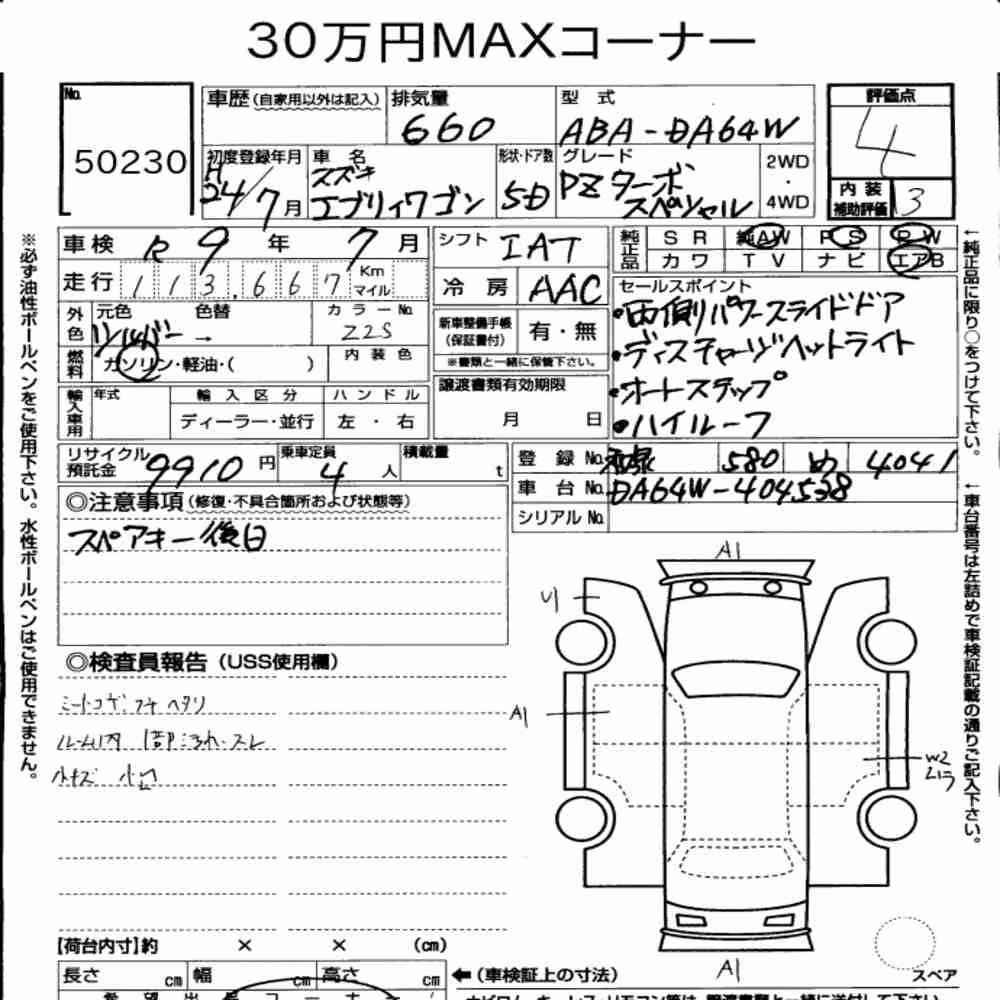 30万円MAXコーナー
No.
50230
車歴（自家用以外は記入）
排気量
660
型 式
ABA-DA64W
評価点
4
初度登録年月
H
24/7月
車 名
スズキ
エブリィワゴン
形状・ドア数
5D
グレード
PZターボ
スペシャル
2WD
・
4WD
内 装
補助評価
3
車検 R 9 年 7 月
走行 113,667 Km マイル
シフト IAT
冷 房 AAC
純正品 SR 純AW PS PW
カワ TV ナビ エアB
外色 元色 色替 カラーNo.
シルバー → Z2S
燃料 ガソリン・軽油・（ ） 内 装 色
新車整備手帳
（保証書付） 有・無
※書類と一緒に保管下さい。
セールスポイント
・両側パワースライドドア
・ディスチャージヘットライト
・オートステップ
・ハイルーフ
輸入車用 年式 輸 入 区 分 ハ ン ド ル
ディーラー・並行 左 ・ 右
譲渡書類有効期限
月 日
リサイクル
預託金 9910 円
乗車定員
4 人
積載量
t
登 録 No. 580 め 4041
車 台 No. DA64W-404538
シリアル No.
◎注意事項（修復・不具合箇所および状態等）
スペアキー後日
◎検査員報告（USS使用欄）
シートコゲ.フチ ヘタリ
ルーム内 1部汚れ・スレ
小キズ 小凹
A1
U1
A1
W2
A1
スペア
【荷台内寸】約 × × （㎝）
長さ ㎝ 幅 ㎝ 高さ ㎝
←（車検証上の寸法）
※必ず油性ボールペンをご使用下さい。水性ボールペンはご使用できません。
←純正品に限り○をつけて下さい。
←車台番号は左詰めで車検証記載の通りご記入下さい。